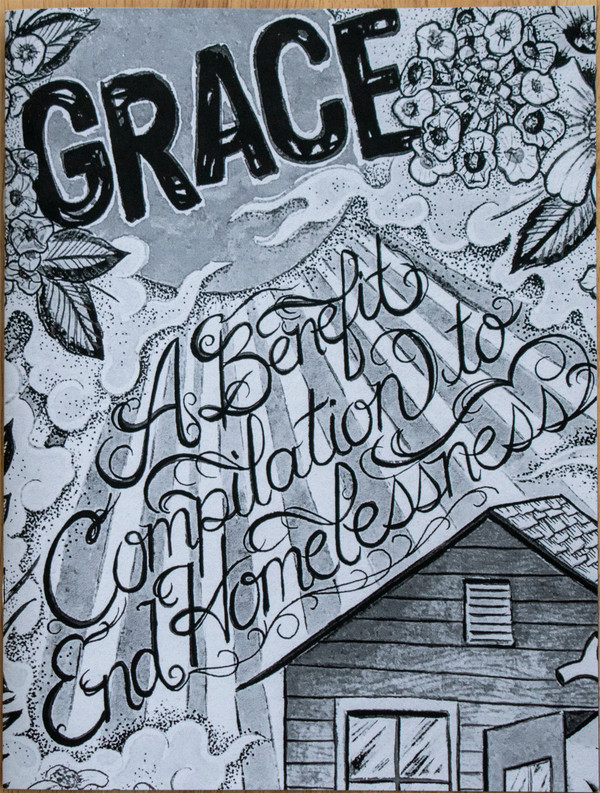 GRACE
A Benefit
Compilation to
End Homelessness